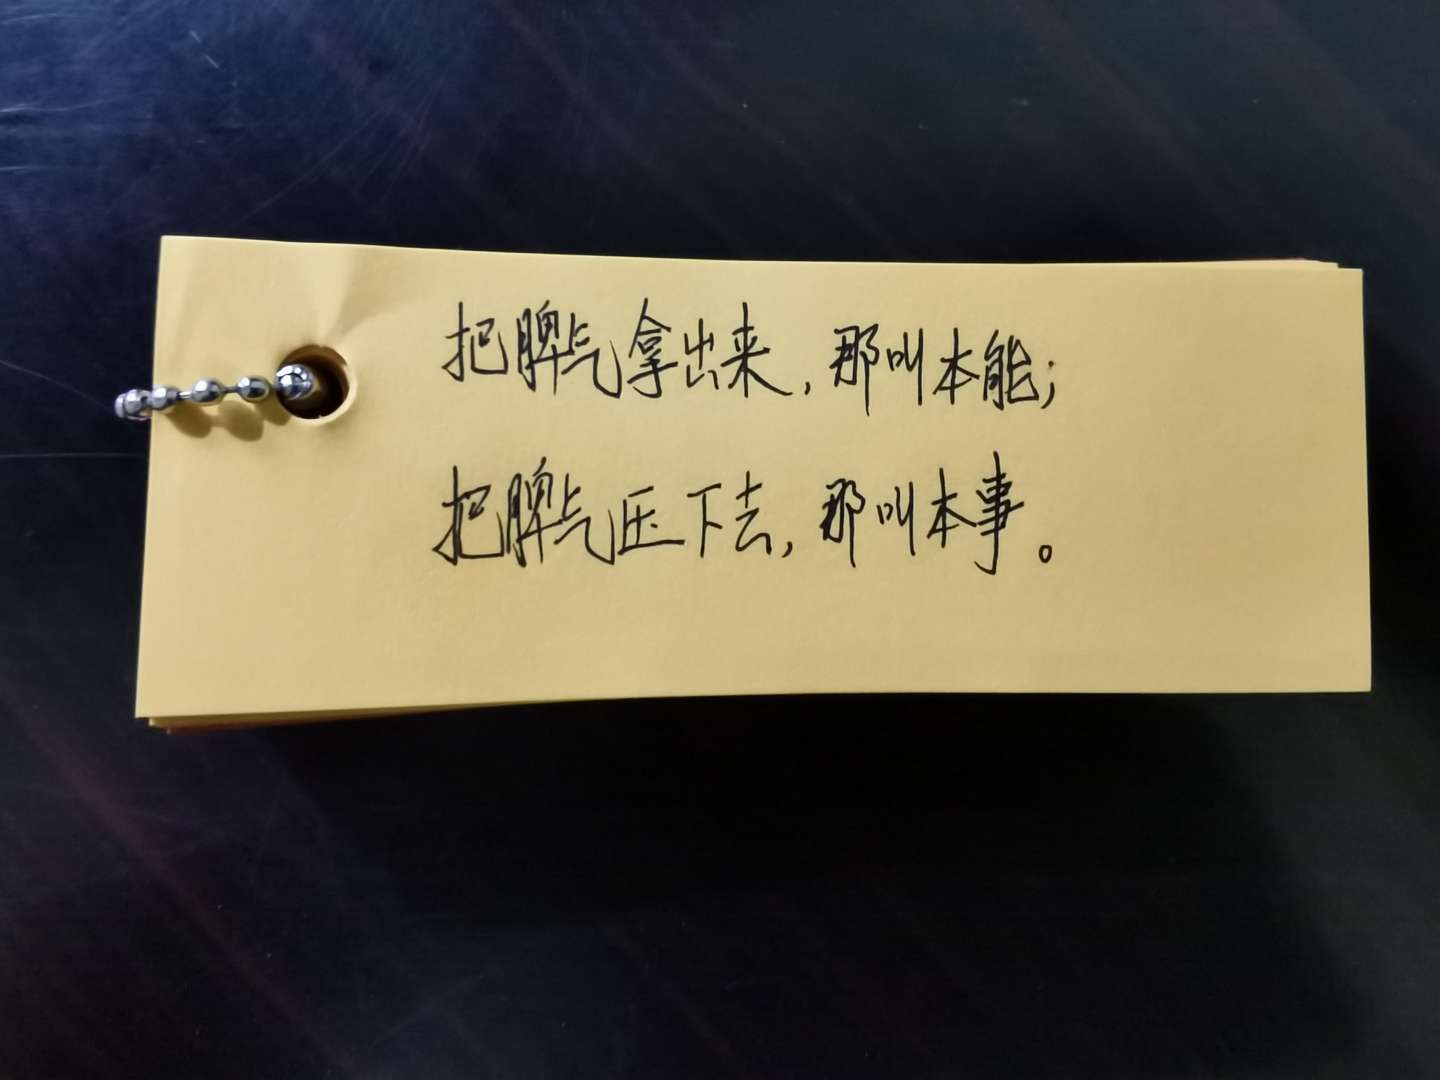 把脾气拿出来，那叫本能；
把脾气压下去，那叫本事。